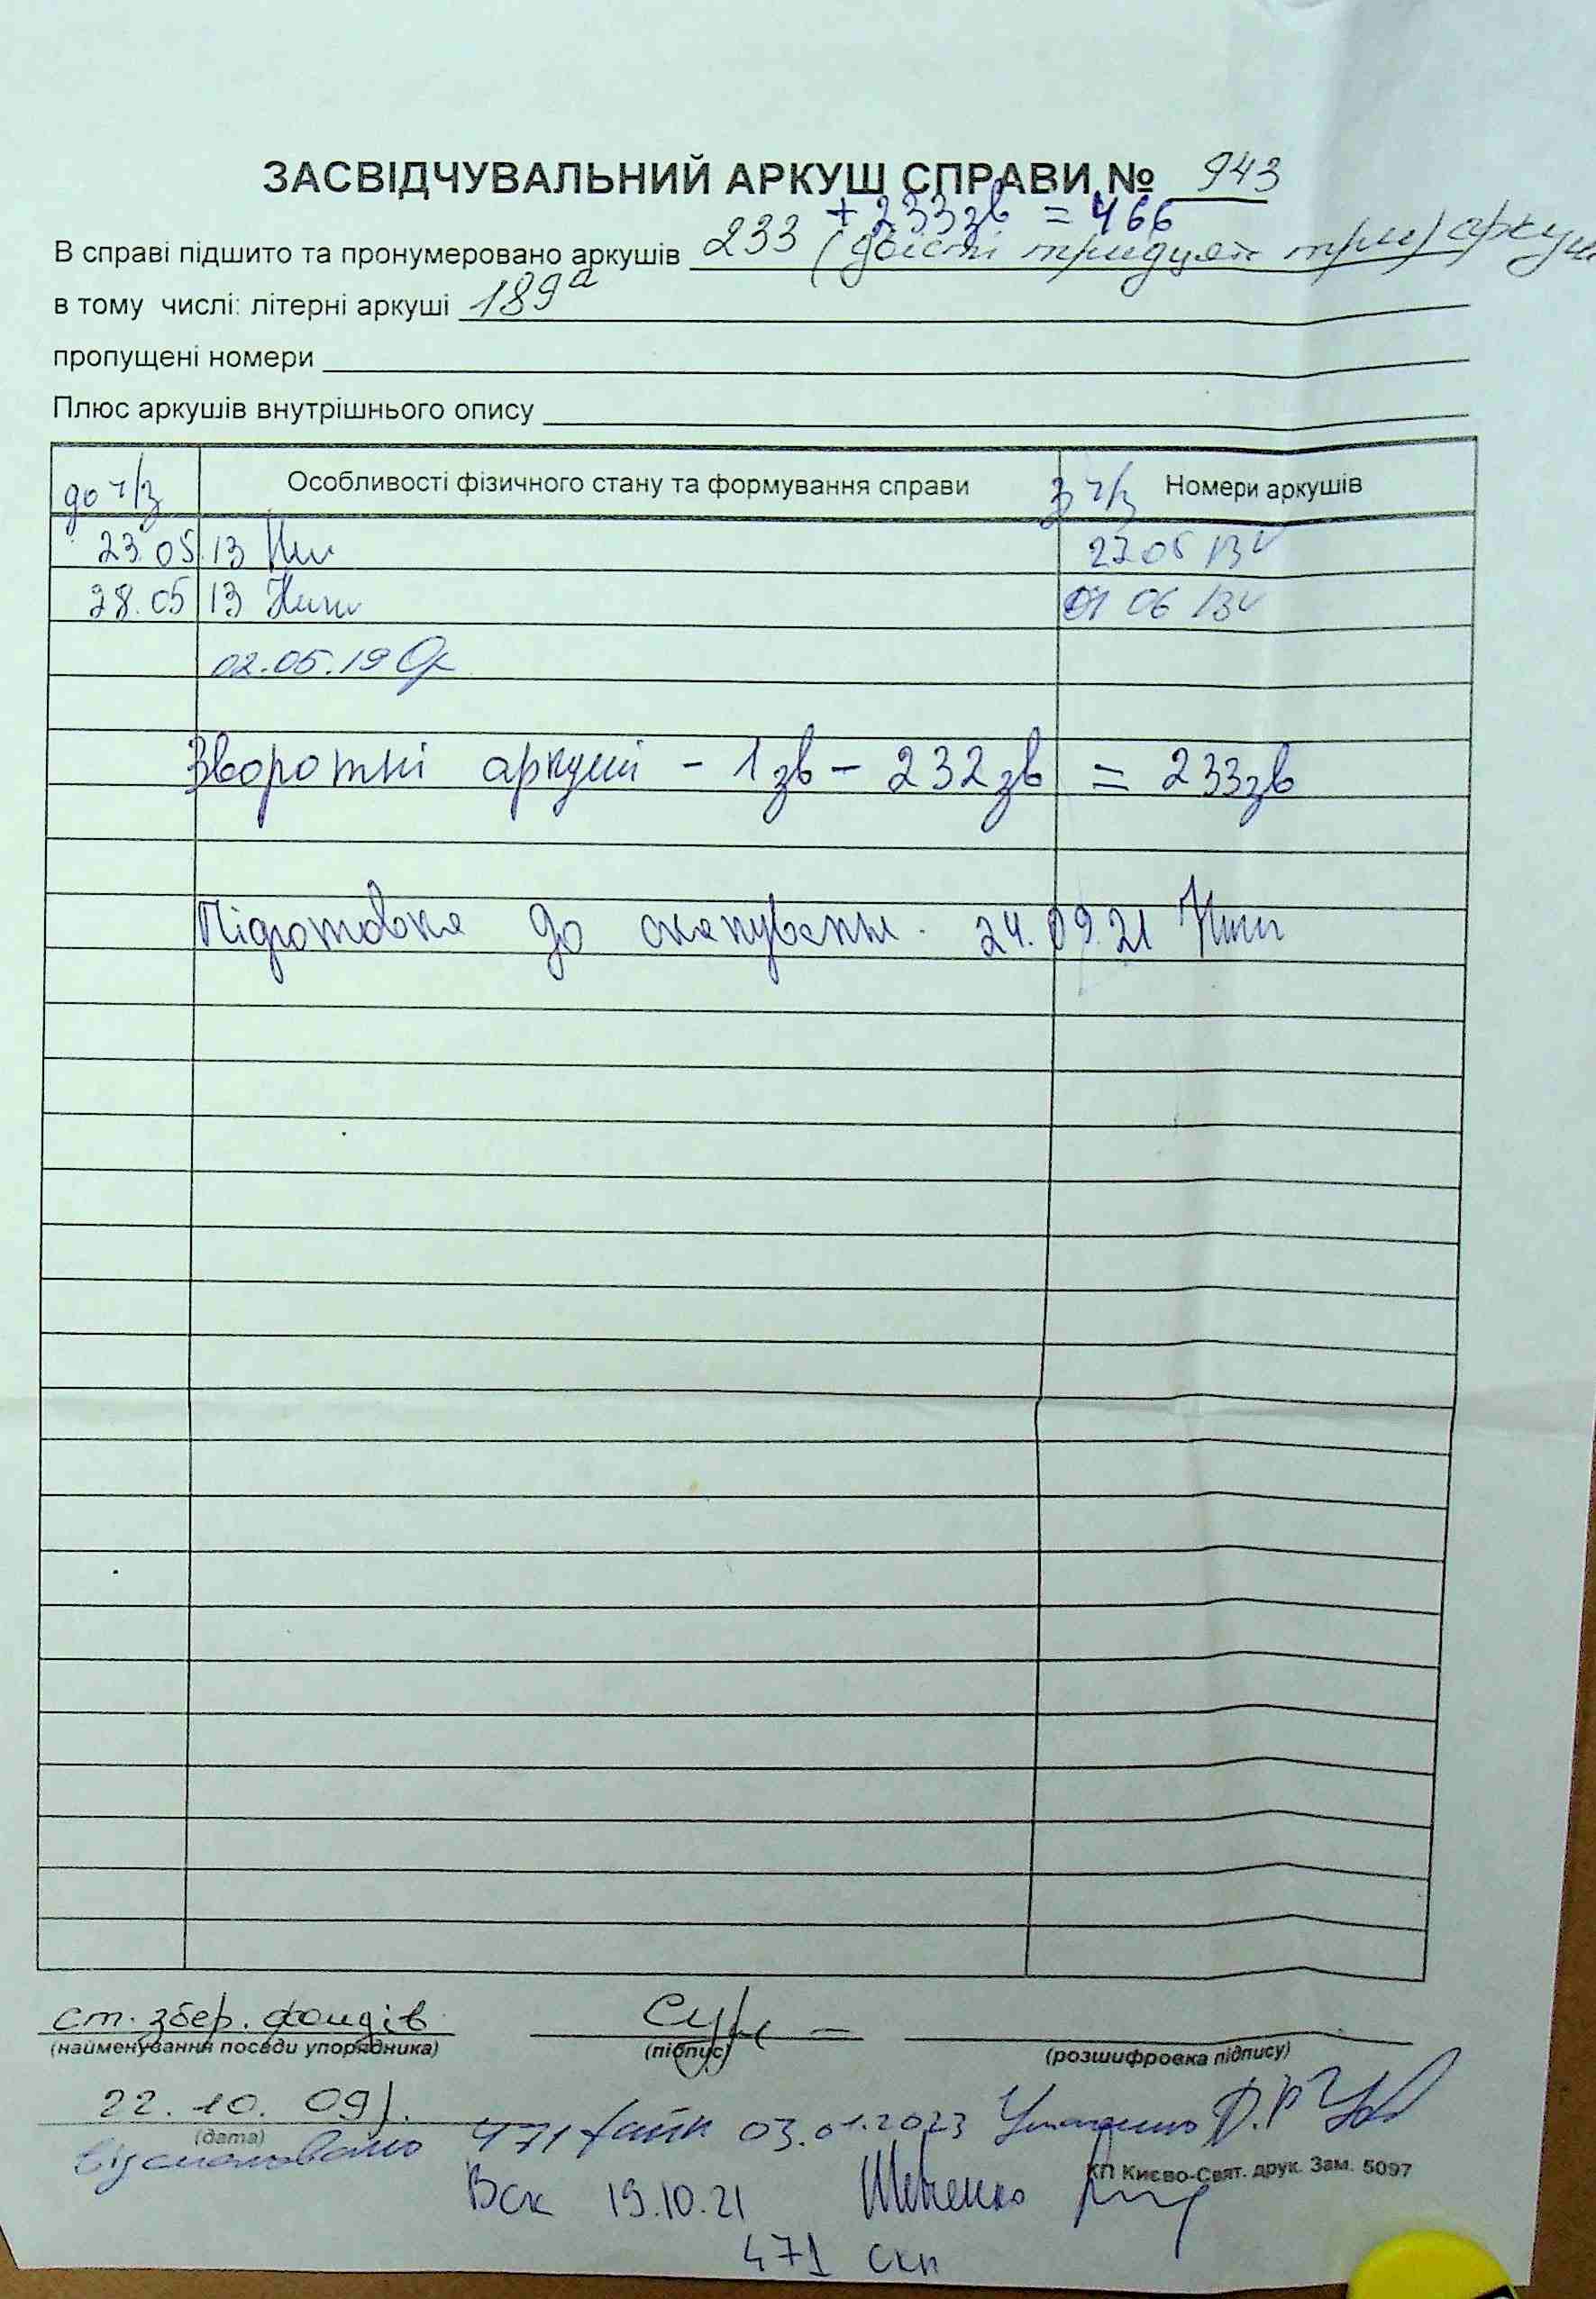 ЗАСВІДЧУВАЛЬНИЙ АРКУШ СПРАВИ № 943
+ 233зв = 466
В справі підшито та пронумеровано аркушів 233 (двісті тридцять три) аркуш
в тому числі: літерні аркуші 189а
пропущені номери
Плюс аркушів внутрішнього опису
до ч/з Особливості фізичного стану та формування справи з ч/з Номери аркушів
23.05 13 27 05 13
28.05 13 01 06 13
02.05.19
Зворотні аркуші - 1зв - 232зв = 233зв
Підготовка до сканування. 24.09.21
ст. збер. фондів
(найменування посади упорядника) (підпис) (розшифровка підпису)
22. 10. 09р.
(дата)
Відскановано 471 файл 03.01.2023
КП Києво-Свят. друк. Зам. 5097
Вск 19.10.21 Шевченко
471 скн